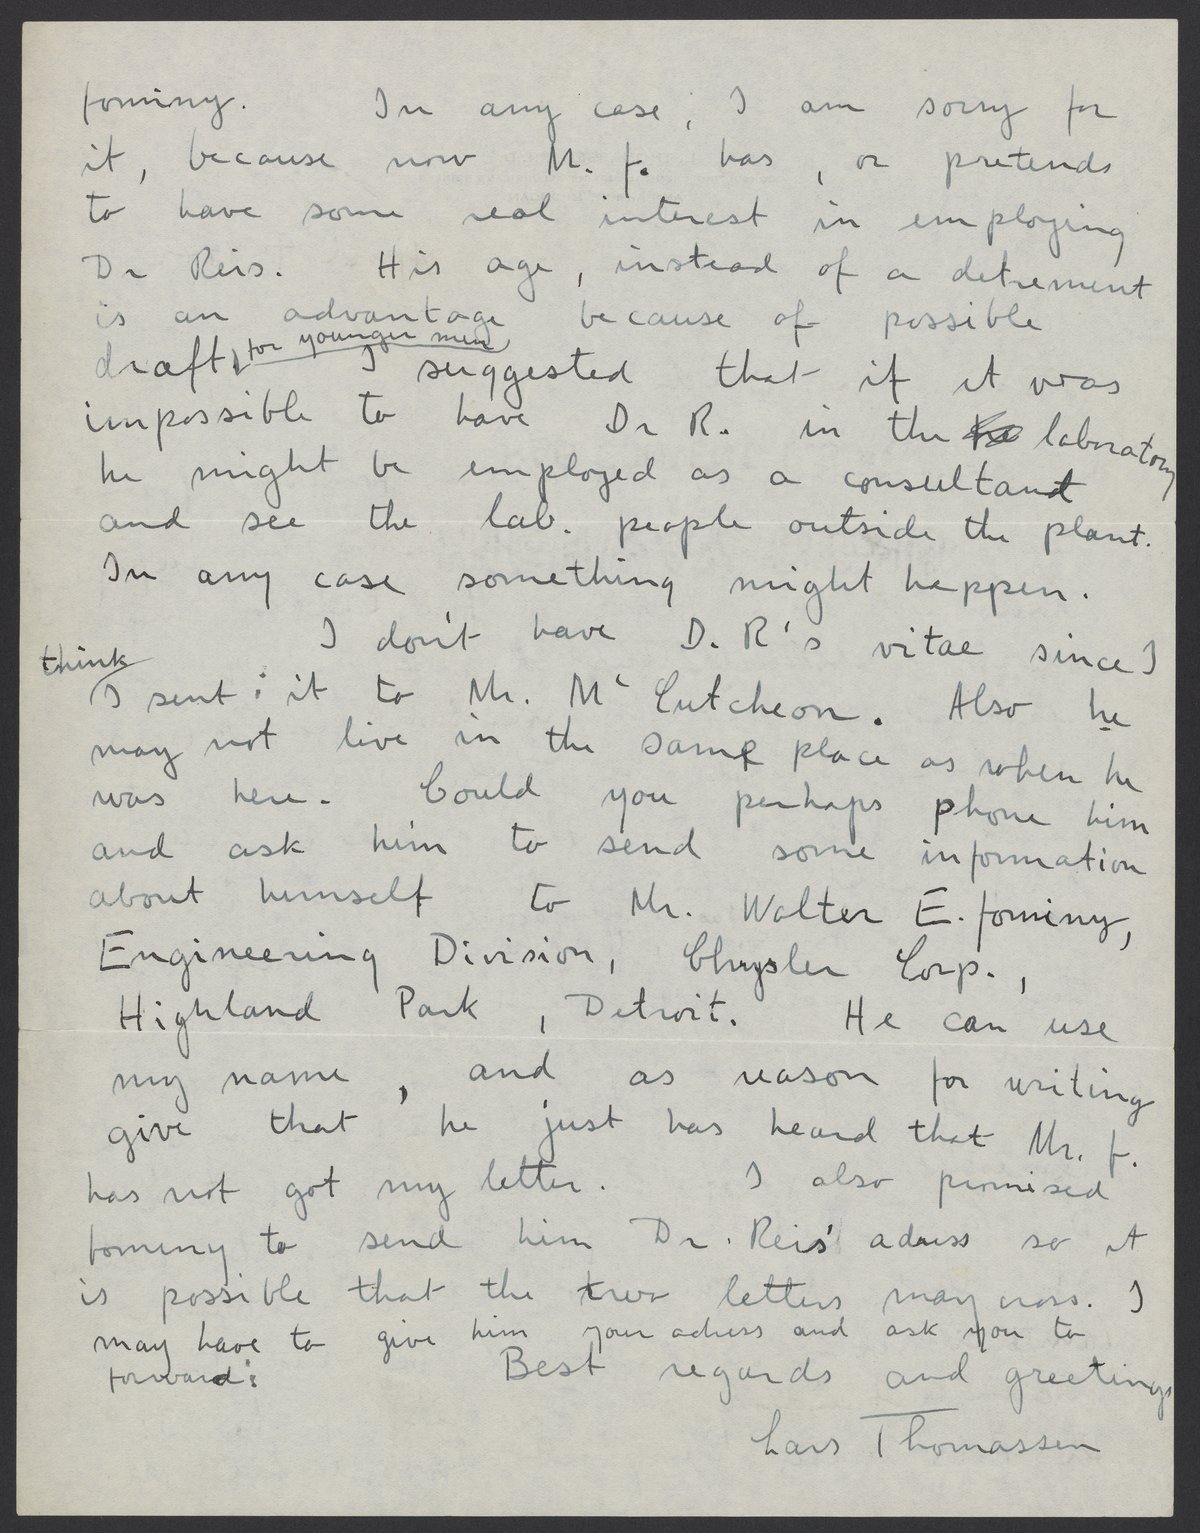 fominy. In any case, I am sorry for
it, because now M. f. has, or pretends
to have some real interest in employing
Dr Reis. His age, instead of a detrement
is an advantage because of possible
draft, for younger men I suggested that if it was
impossible to have Dr R. in the laboratory
he might be employed as a consultant
and see the lab. people outside the plant.
In any case something might happen.
I don't have D. R's vitae since I
think
I sent it to Mr. Mc Cutcheon. Also he
may not live in the same place as when he
was here. Could you perhaps phone him
and ask him to send some information
about himself to Mr. Walter E. fominy,
Engineering Division, Chrysler Corp.,
Highland Park, Detroit. He can use
my name, and as reason for writing
give that he just has heard that Mr. f.
has not got my letter. I also promised
fominy to send him Dr. Reis' adress so it
is possible that the two letters may cross. I
may have to give him your adress and ask you to
forward. Best regards and greetings
Lars Thomassen